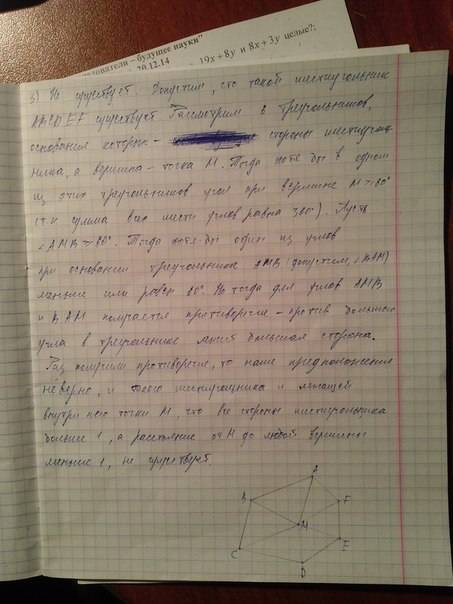 дователи – будущее науки"
20.12.14
19x + 8y и 8x + 3y целые?;
3) Не существует. Допустим, что такой шестиугольник
ABCDEF существует. Рассмотрим 6 треугольников,
основания которых – стороны шестиуголь-
ника, а вершина – точка M. Тогда хотя бы в одном
из этих треугольников угол при вершине M ≥ 60°
(т.к. сумма всех шести углов равна 360°). Пусть
∠AMB ≥ 60°. Тогда хотя бы один из углов
при основании треугольника AMB (допустим, ∠BAM)
меньше или равен 60°. Но тогда для углов AMB
и BAM получается противоречие – против большего
угла в треугольнике лежит большая сторона.
Раз получили противоречие, то наше предположение
неверно, и такого шестиугольника и лежащей
внутри него точки M, что все стороны шестиугольника
больше 1, а расстояние от M до любой вершины
меньше 1, не существует.
A
B
F
M
C
E
D